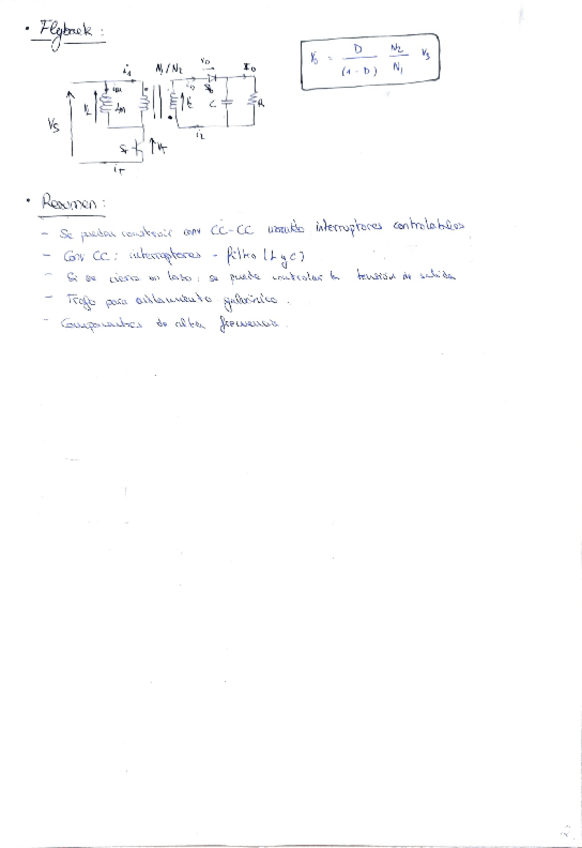 • Flyback:
i1 N1/N2 vD Io
Vs Lm C R
i2
iT
Vo = D / (1-D) N2 / N1 Vs
• Resumen:
- Se pueden construir conv CC-CC usando interruptores controlables
- Conv CC: interruptores - filtro (L y C)
- Si se cierra un lazo, se puede controlar la tensión de salida
- Trafo para aislamiento galvánico.
- Componentes de alta frecuencia.